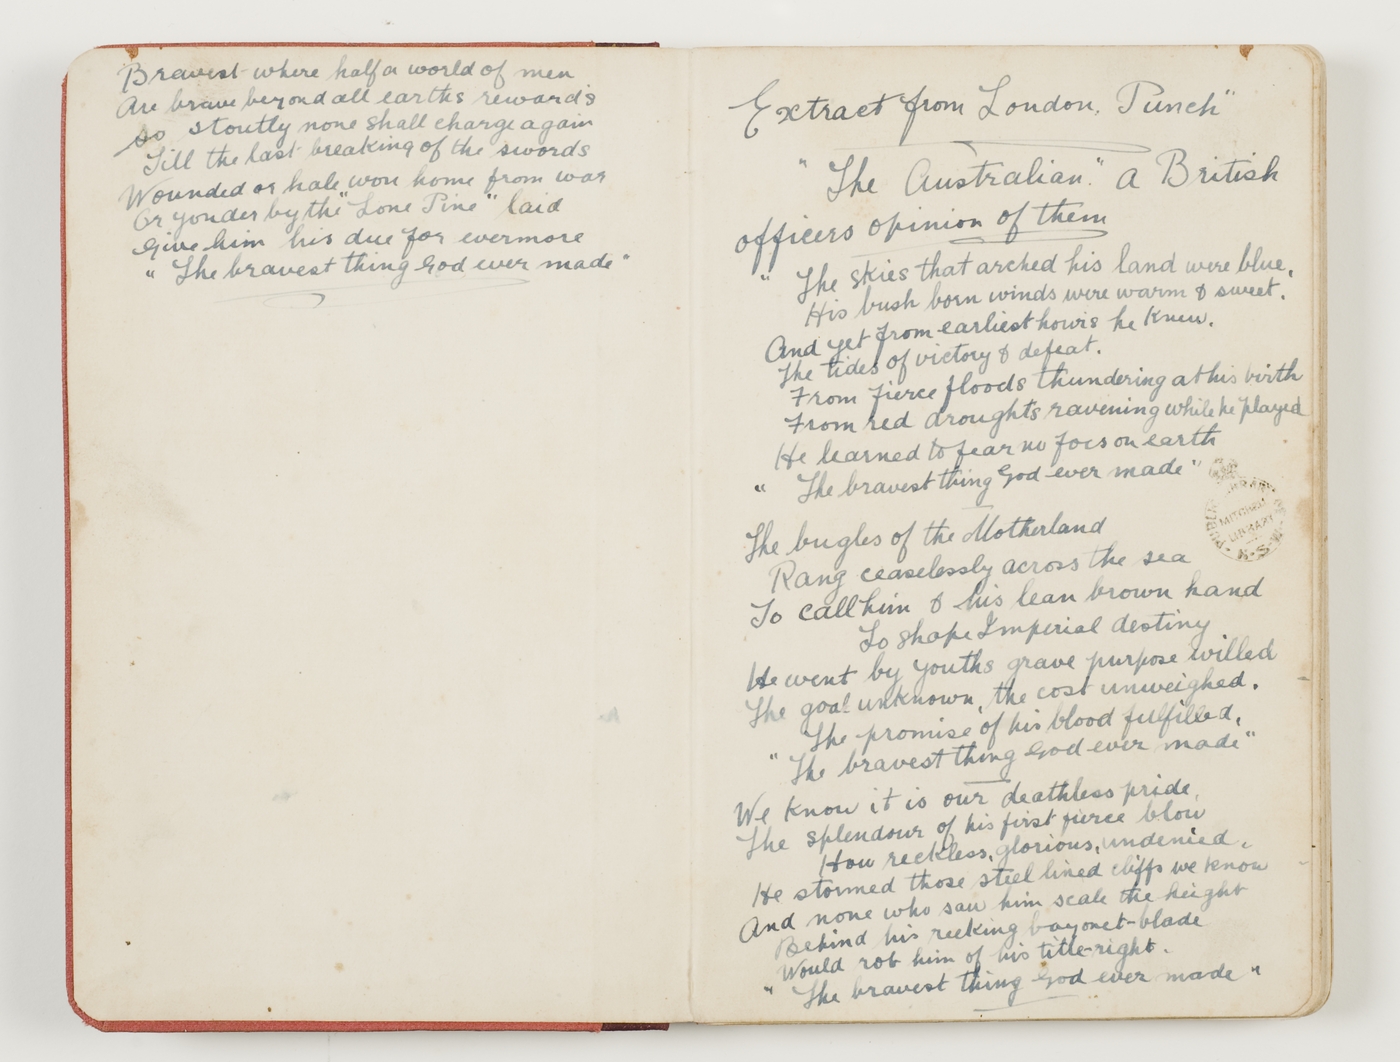 Bravest where half a world of men
Are brave beyond all earths rewards
so stoutly none shall charge again
Till the last breaking of the swords
Wounded or hale won home from war
Or yonder by the "Lone Pine" laid
Give him his due for evermore
" The bravest thing God ever made"
Extract from London, Punch"
" The Australian." A British
officers opinion of them
" The skies that arched his land were blue,
His bush born winds were warm & sweet.
And yet from earliest hours he knew.
The tides of victory & defeat.
From fierce floods thundering at his birth
From red droughts ravening while he played
He learned to fear no foes on earth
" The bravest thing God ever made"
The bugles of the Motherland
Rang ceaselessly across the sea
To call him & his lean brown hand
To shape Imperial destiny
He went by youths grave purpose willed
The goal unknown, the cost unweighed.
The promise of his blood fulfilled,
" The bravest thing God ever made"
We know it is our deathless pride,
The splendour of his first fierce blow
How reckless, glorious, undenied,
He stormed those steel lined cliffs we know
And none who saw him scale the height
Behind his reeking bayonet-blade
Would rob him of his title-right.
" The bravest thing God ever made"
PUBLIC LIBRARY OF N.S.W.
MITCHELL
LIBRARY